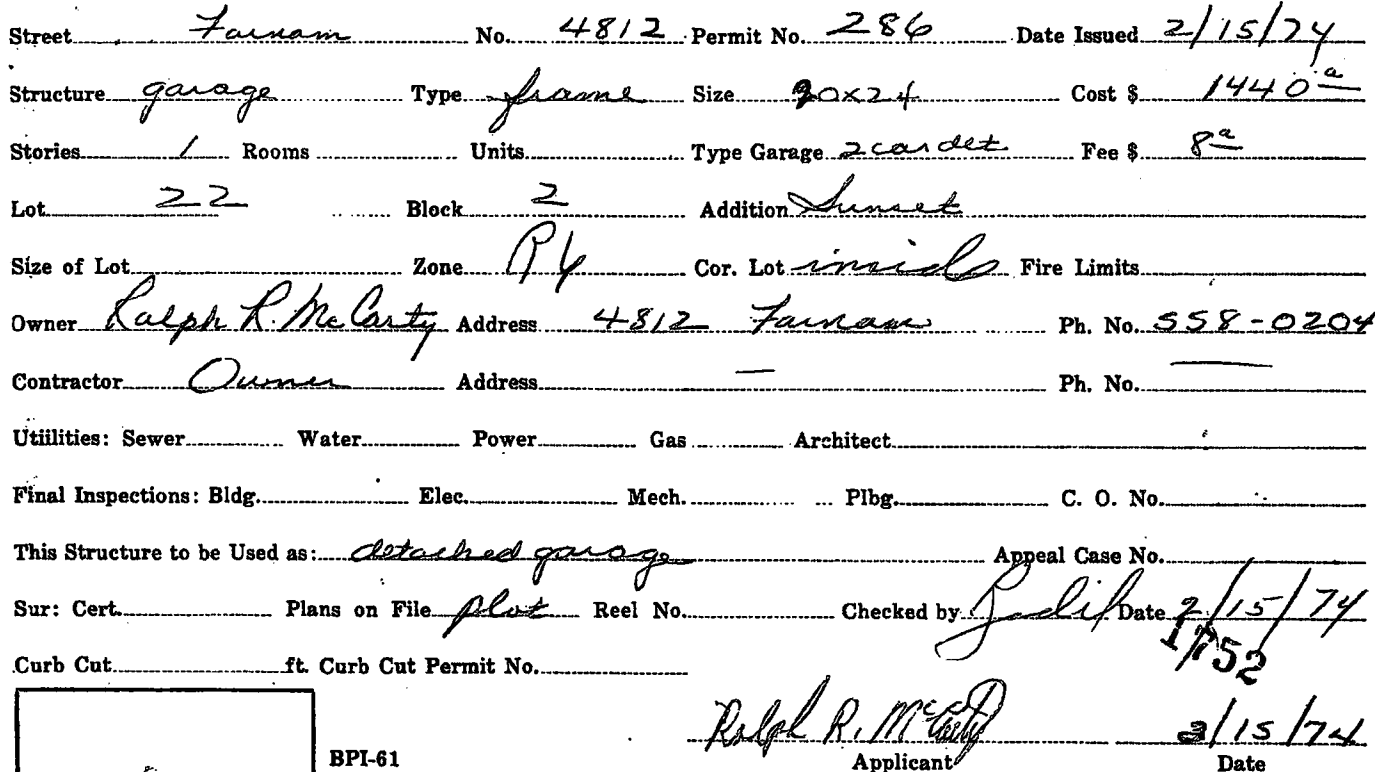 Street Farnam No. 4812 Permit No. 286 Date Issued 2/15/74
Structure garage Type frame Size 20x24 Cost $ 1440
Stories 1 Rooms Units Type Garage 2 car det Fee $ 8
Lot 22 Block 2 Addition Sunset
Size of Lot Zone Cor. Lot inside Fire Limits
Owner Ralph R. McCarty Address 4812 Farnam Ph. No. 558-0204
Contractor Owner Address — Ph. No. —
Utiilities: Sewer Water Power Gas Architect
Final Inspections: Bldg. Elec. Mech. Plbg. C. O. No.
This Structure to be Used as: detached garage Appeal Case No.
Sur: Cert. Plans on File plot Reel No. Checked by Date 2/15/74
1752
Curb Cut ft. Curb Cut Permit No.
Ralph R. McCarty 2/15/74
BPI-61 Applicant Date